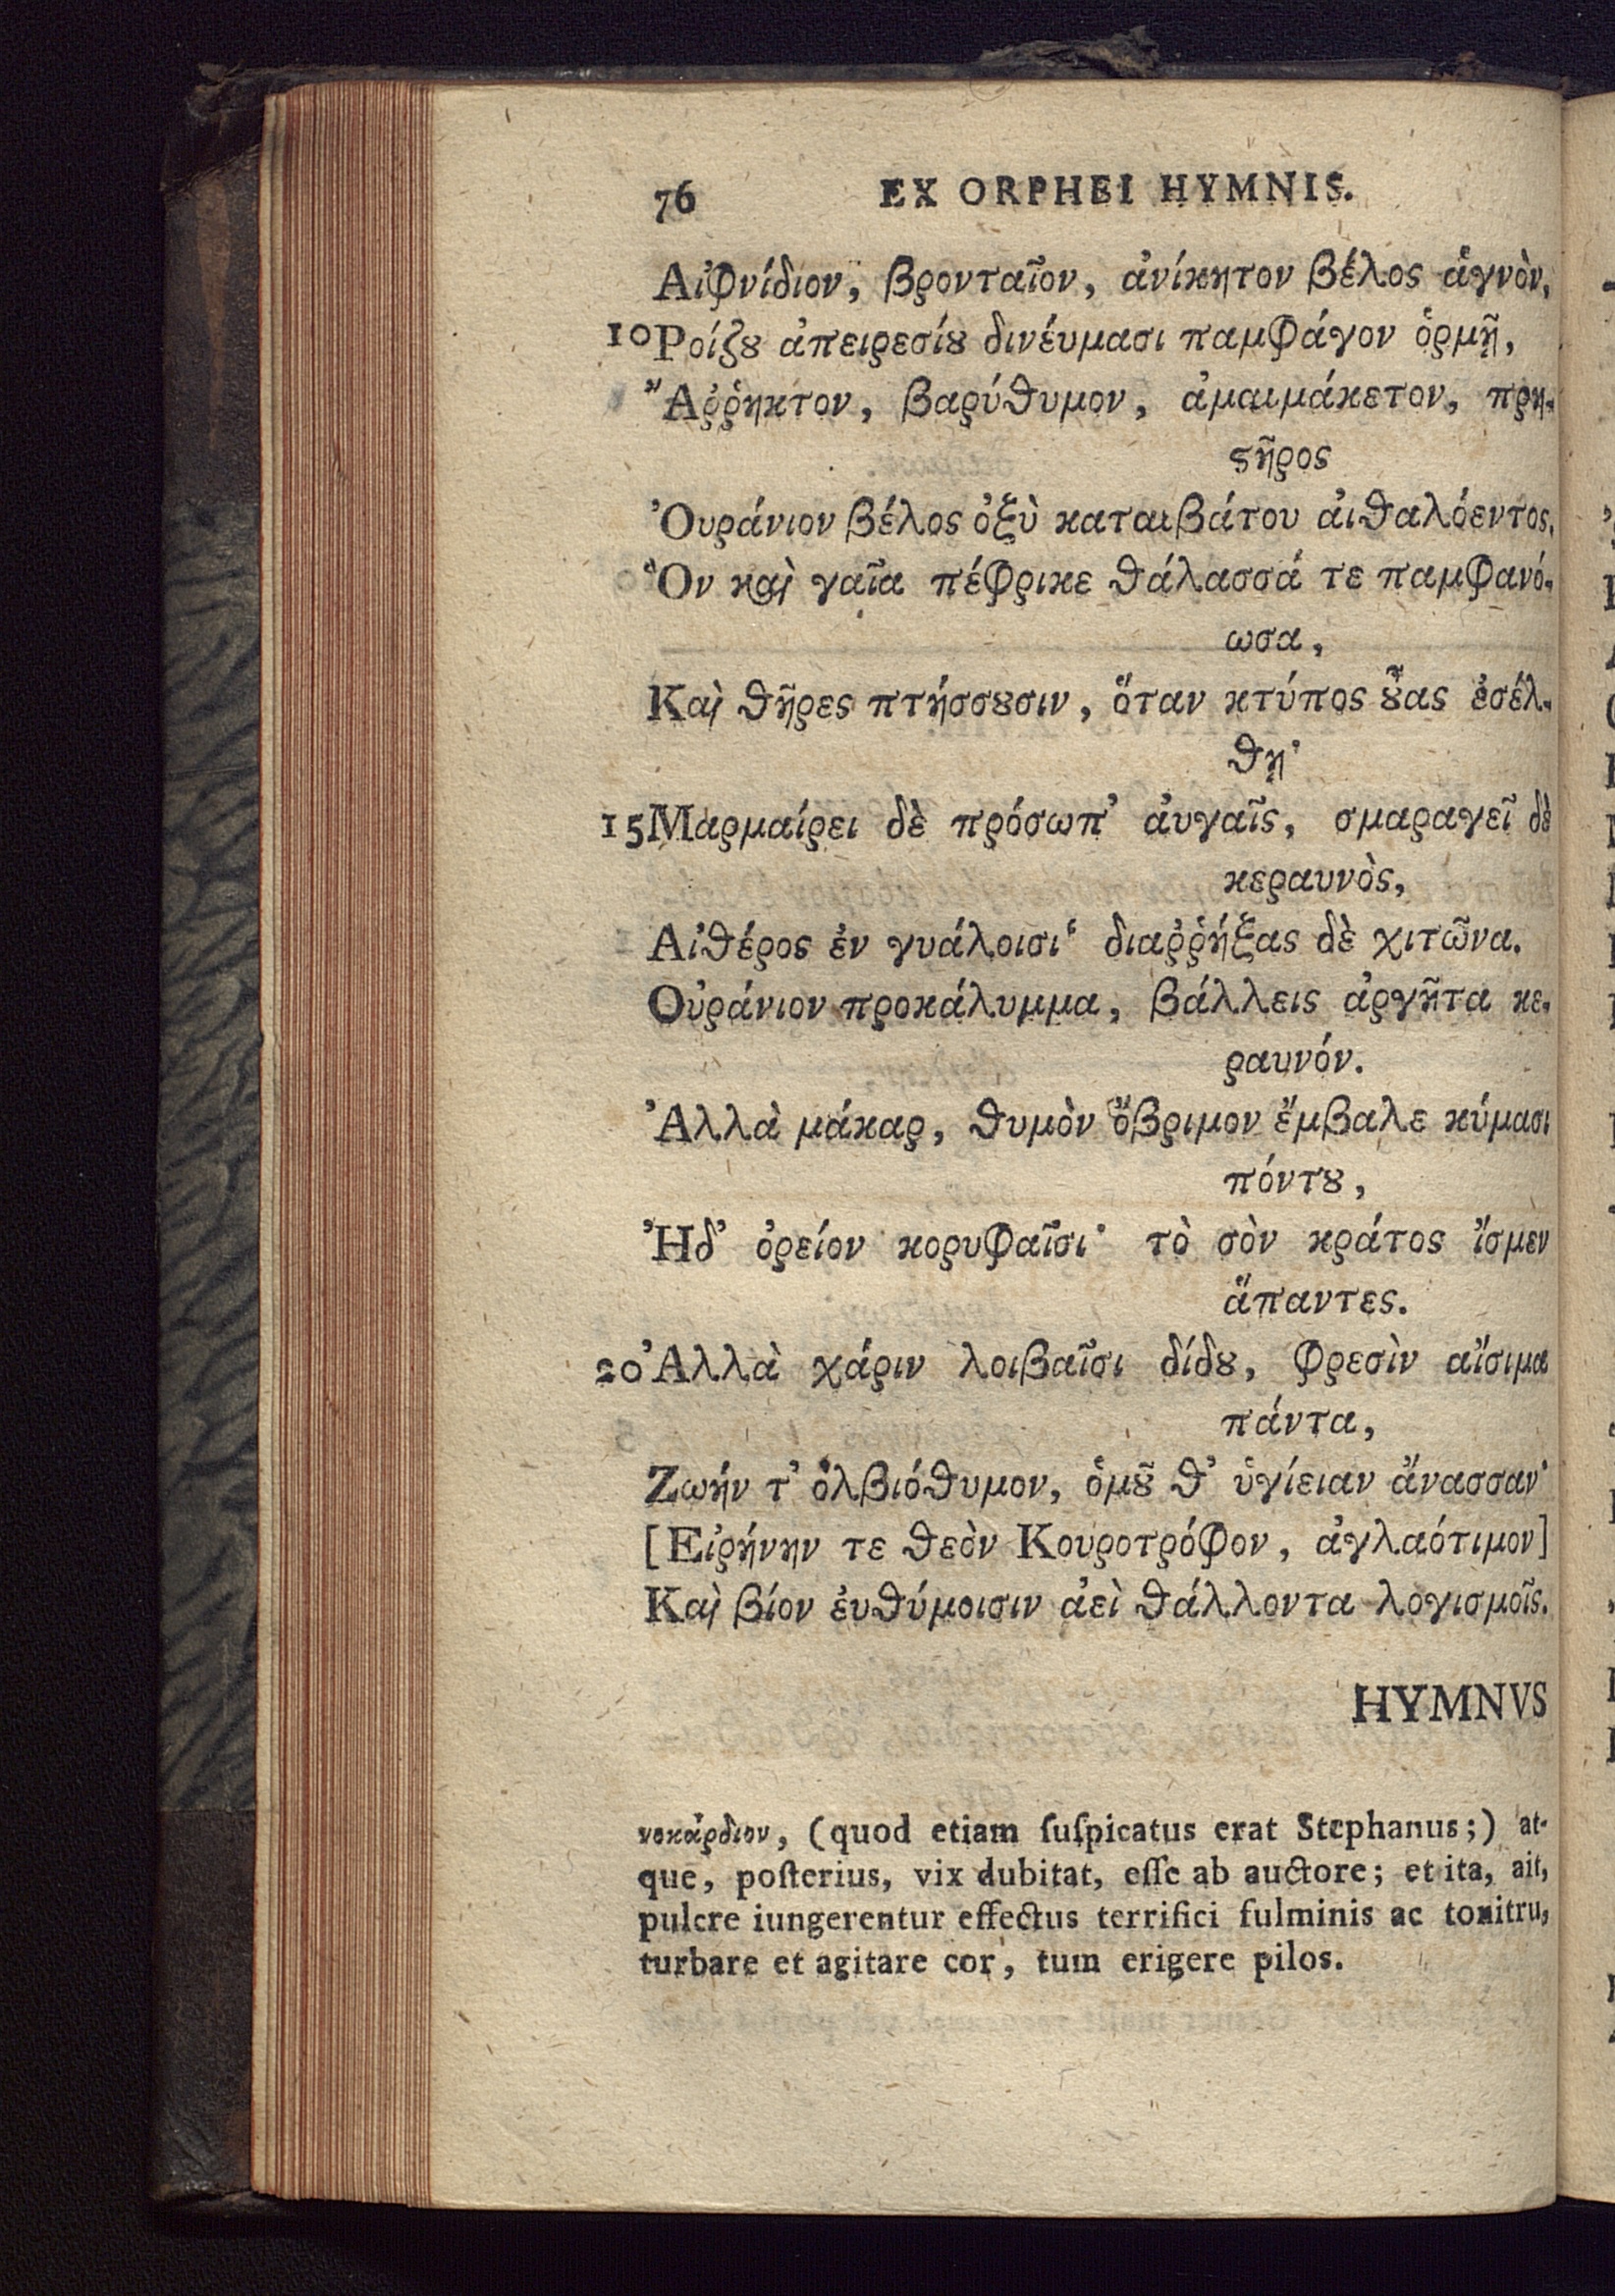 76 EX ORPHEI HYMNIS.
Αἰφνίδιον, βρονταῖον, ἀνίκητον βέλος ἁγνὸν,
10 Ροίζȣ ἀπειρεσίȣ δινέυμασι παμφάγον ὁρμῇ,
Ἄῤῥηκτον, βαρύθυμον, ἀμαιμάκετον, πρη-
ϛῆρος
Ὀυράνιον βέλος ὀξὺ καταιβάτου ἀιθαλόεντος,
Ὃν καὶ γαῖα πέφρικε θάλασσά τε παμφανό-
ωσα,
Καὶ θῆρες πτήσσȣσιν, ὅταν κτύπος ȣ̓͂ας ἐσέλ-
θῃ·
15 Μαρμαίρει δὲ πρόσωπ' ἀυγαῖς, σμαραγεῖ δὲ
κεραυνὸς,
Αἰθέρος ἐν γυάλοισι· διαῤῥήξας δὲ χιτῶνα.
Οὐράνιον προκάλυμμα, βάλλεις ἀργῆτα κε-
ραυνόν.
Ἀλλὰ μάκαρ, θυμὸν ὄβριμον ἔμβαλε κύμασι
πόντȣ,
Ἠδ' ὀρείον κορυφαῖσι· τὸ σὸν κράτος ἴσμεν
ἅπαντες.
20 Ἀλλὰ χάριν λοιβαῖσι δίδȣ, φρεσὶν αἴσιμα
πάντα,
Ζωήν τ' ὀλβιόθυμον, ὁμȣ͂ θ' ὑγίειαν ἄνασσαν·
[Εἰρήνην τε θεὸν Κουροτρόφον, ἀγλαότιμον]
Καὶ βίον ἐυθύμοισιν ἀεὶ θάλλοντα λογισμοῖς.
HYMNVS
νοκάρδιον, (quod etiam ſuſpicatus erat Stephanus;) at-
que, poſterius, vix dubitat, eſſe ab auctore; et ita, ait,
pulcre iungerentur effectus terrifici fulminis ac tonitru,
turbare et agitare cor, tum erigere pilos.